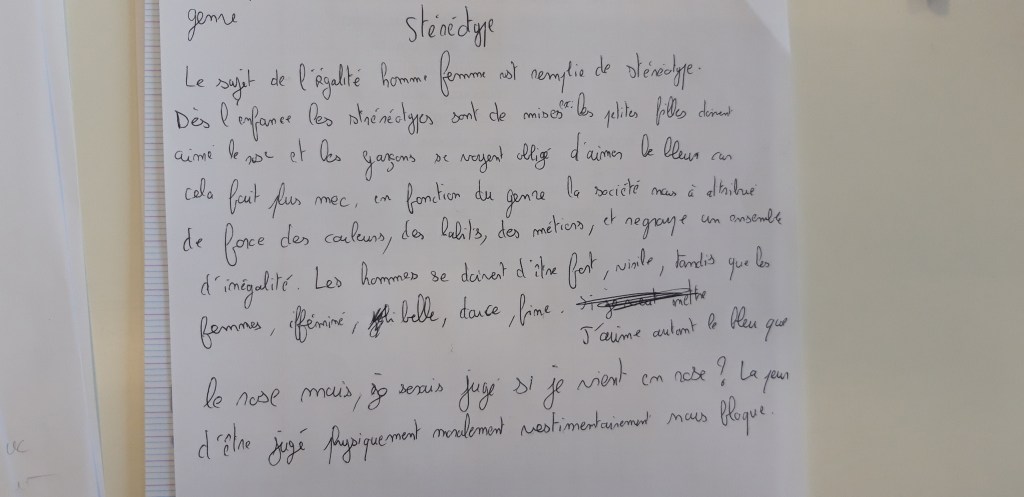 genre
Stéréotype
Le sujet de l'égalité homme femme est remplie de stéréotype.
Dès l'enfance les stéréotypes sont de mises ex: les petites filles doivent
aimé le rose et les garçons se voyent obligé d'aimer le bleu car
cela fait plus mec, en fonction du genre la société nous à attribué
de force des couleurs, des habits, des métiers, et regroupe un ensemble
d'inégalité. Les hommes se doivent d'être fort, virile, tandis que les
femmes, éfféminé, belle, douce, fine. mettre
J'aime autant le bleu que
le rose mais, je serais jugé si je vient en rose? La peur
d'être jugé physiquement moralement vestimentairement nous bloque.